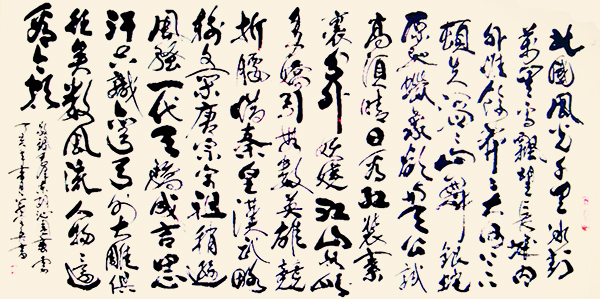 北國風光千里冰封
萬里雪飄望長城内
外惟餘莽莽大河上下
頓失滔滔山舞銀蛇
原馳蠟象欲與天公試
高須晴日看紅裝素
裹分外妖嬈江山如此
多嬌引無數英雄競
折腰惜秦皇漢武略
輸文采唐宗宋祖稍遜
風騷一代天驕成吉思
汗只識彎弓射大雕俱
往矣數風流人物還
看今朝
毛澤東詞沁園春雪
丁亥年